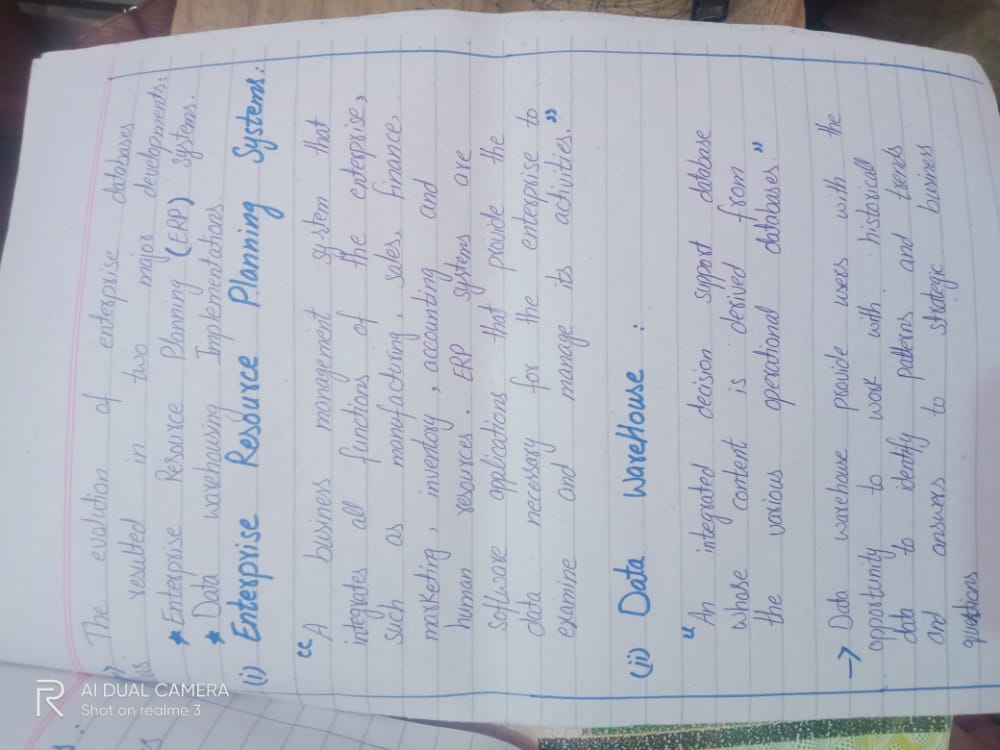 The evolution of enterprise databases
has resulted in two major developments:
* Enterprise Resource Planning (ERP) Systems.
* Data warehousing Implementations
(i) Enterprise Resource Planning Systems:
“A business management system that
integrates all functions of the enterprise,
such as manufacturing, sales, finance,
marketing, inventory, accounting and
human resources. ERP systems are
software applications that provide the
data necessary for the enterprise to
examine and manage its activities.”
(ii) Data WareHouse :
“An integrated decision support database
whose content is derived from
the various operational databases.”
→ Data warehouse provide users with the
opportunity to work with historical
data to identify patterns and trends
and answers to strategic business
questions
AI DUAL CAMERA
Shot on realme 3